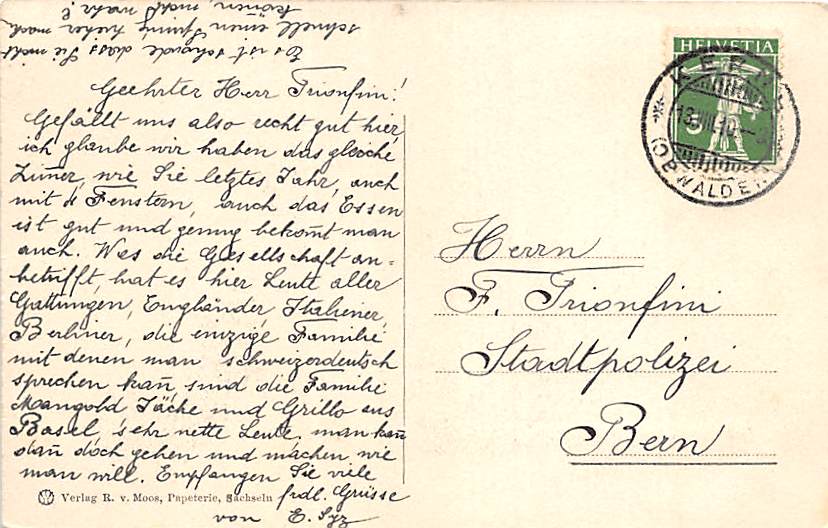 Geehrter Herr Trionfini!
Gefällt uns also recht gut hier,
ich glaube wir haben das gleiche
Zimer, wie Sie letztes Jahr, auch
mit 4 Fenstern, auch das Essen
ist gut und genug bekom̄t man
auch. Was die Gesellschaft an=
betrifft, hat es hier Leute aller
Gattungen, Engländer, Italiener,
Berliner, die einzige Familie
mit denen man schweizerdeutsch
sprechen kan̄ sind die Familie
Mangold Jäche und Grillo aus
Basel, sehr nette Leute, man kan̄
dan̄ doch gehen und machen wie
man will. Empfangen Sie viele
frdl. Grüsse
von E. Syz
Es ist schade dass Sie nicht
schnell einen Sprung hieher mach
können, nicht wahr?
Verlag R. v. Moos, Papeterie, Sachseln
HELVETIA
5
KERNS
(OBWALDEN)
Herrn
F. Trionfini
Stadtpolizei
Bern